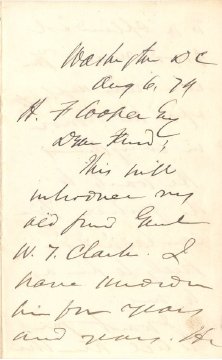 Washington DC
Aug 6, 79
H. F Cooper Esq
Dear Friend;
This will
introduce my
old friend Genl
W. T. Clark. I
have known
him for years
and years. He